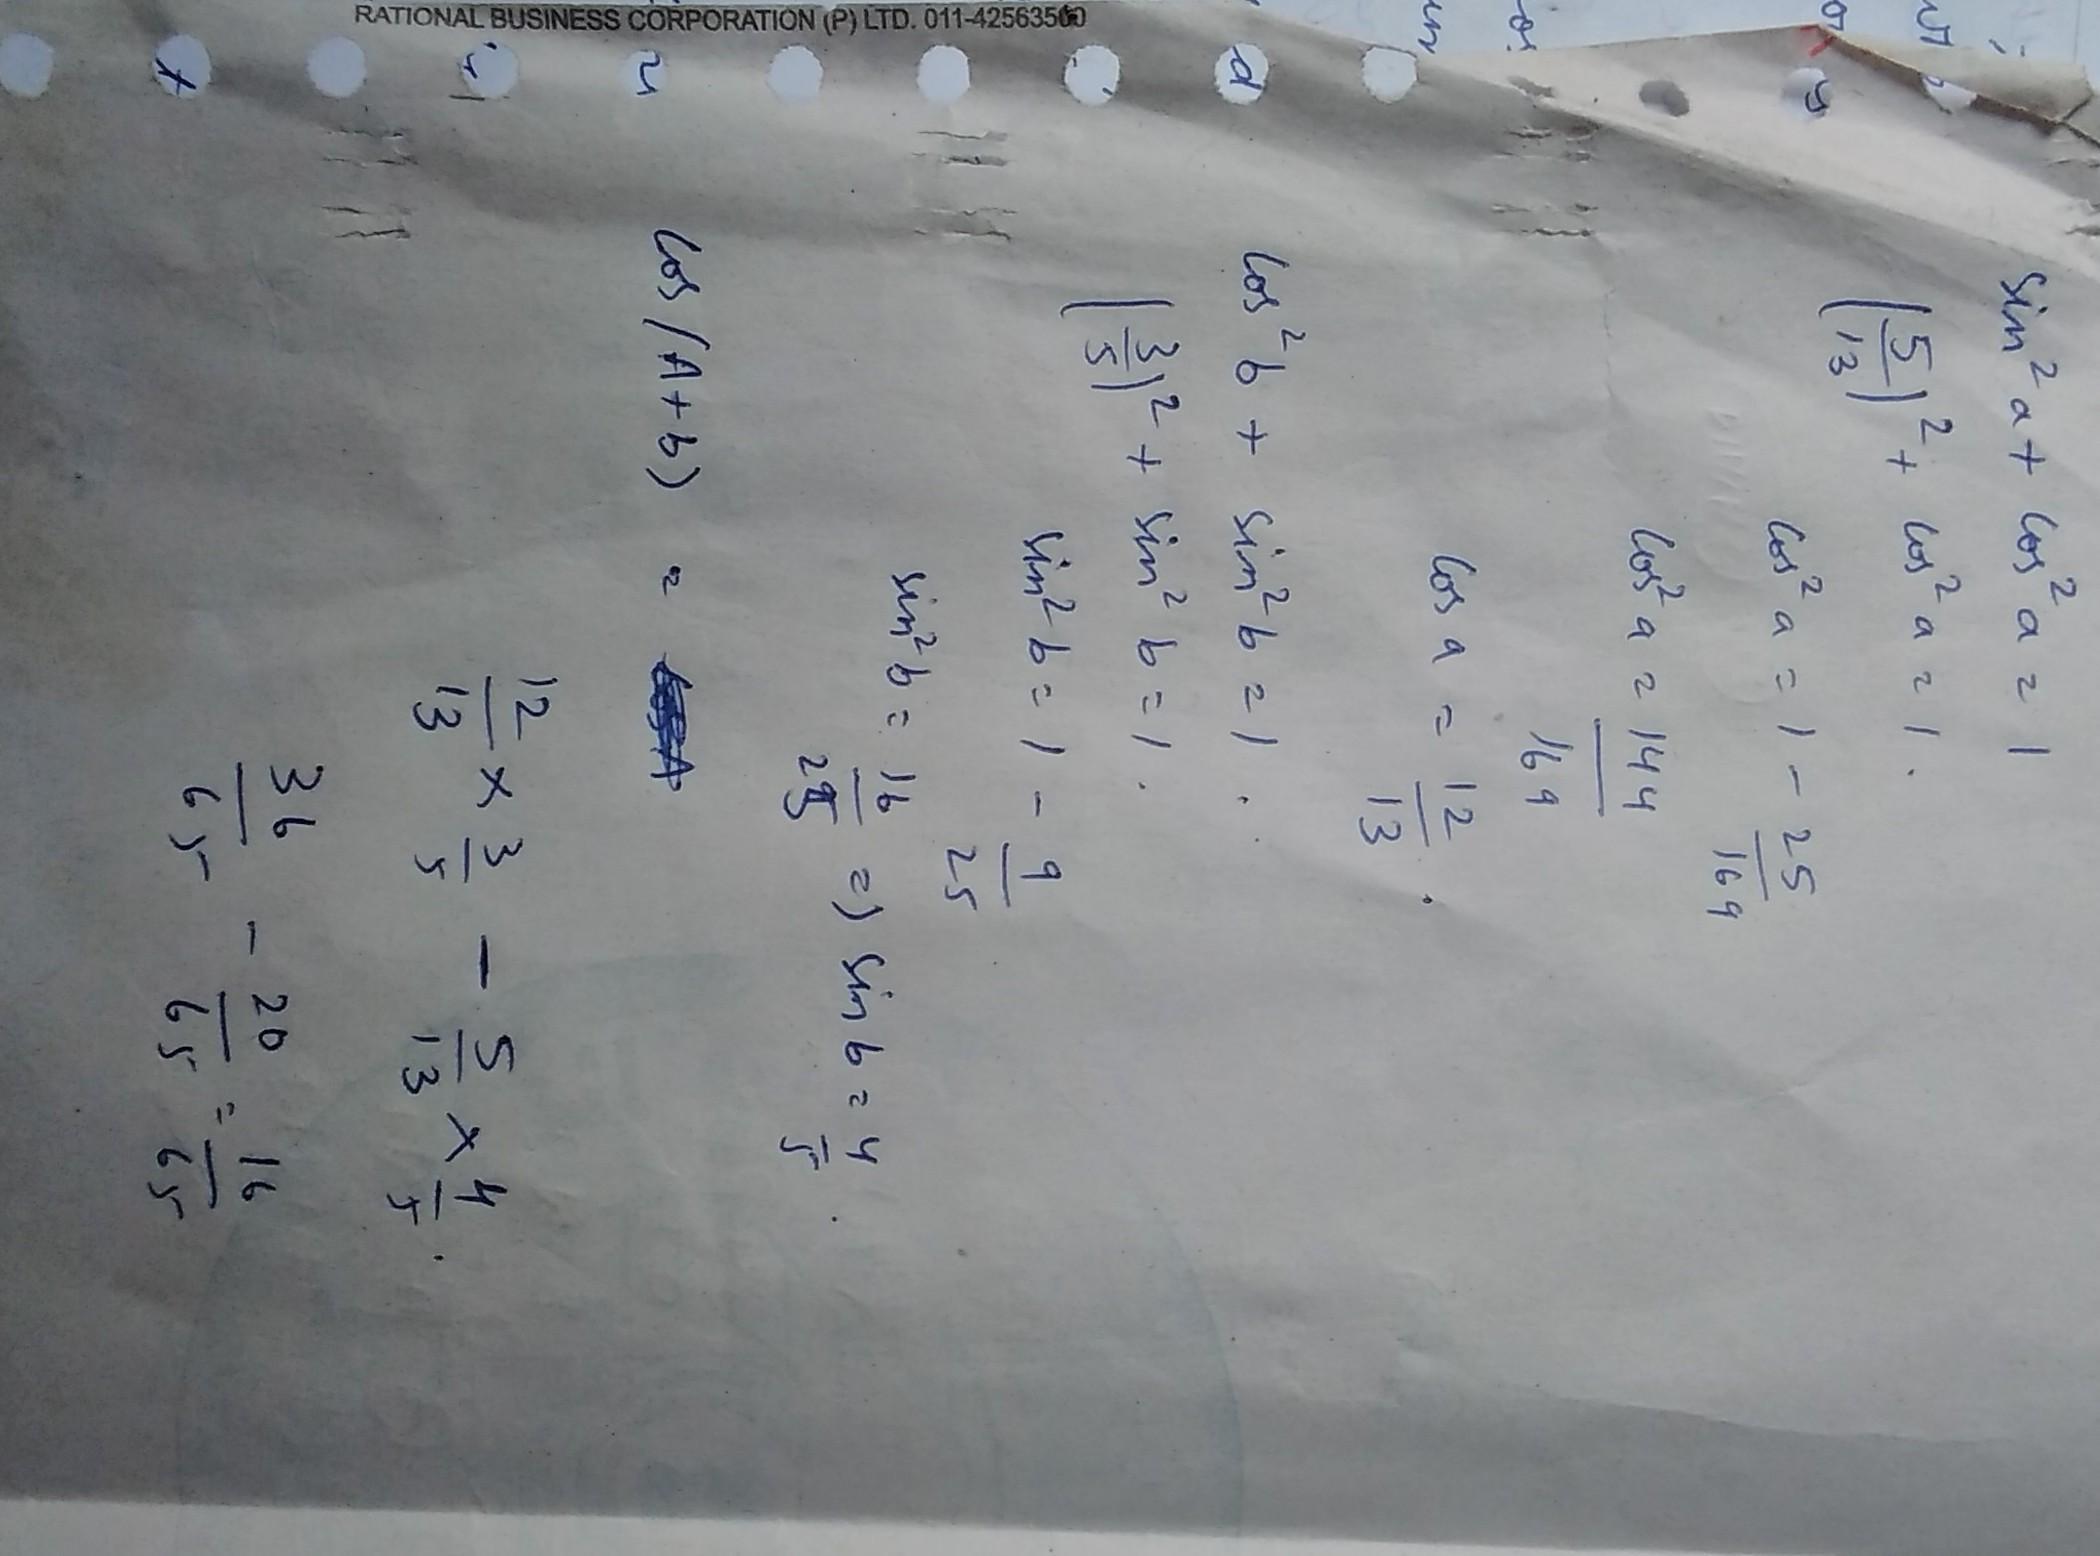 RATIONAL BUSINESS CORPORATION (P) LTD. 011-42563500
sin² a + cos² a = 1
(5/13)² + cos² a = 1.
cos² a = 1 - 25/169
cos² a = 144/169
cos a = 12/13.
cos² b + sin² b = 1.
(3/5)² + sin² b = 1.
sin² b = 1 - 9/25
sin² b = 16/25 => sin b = 4/5.
cos (A+b) =
12/13 × 3/5 - 5/13 × 4/5.
36/65 - 20/65 = 16/65